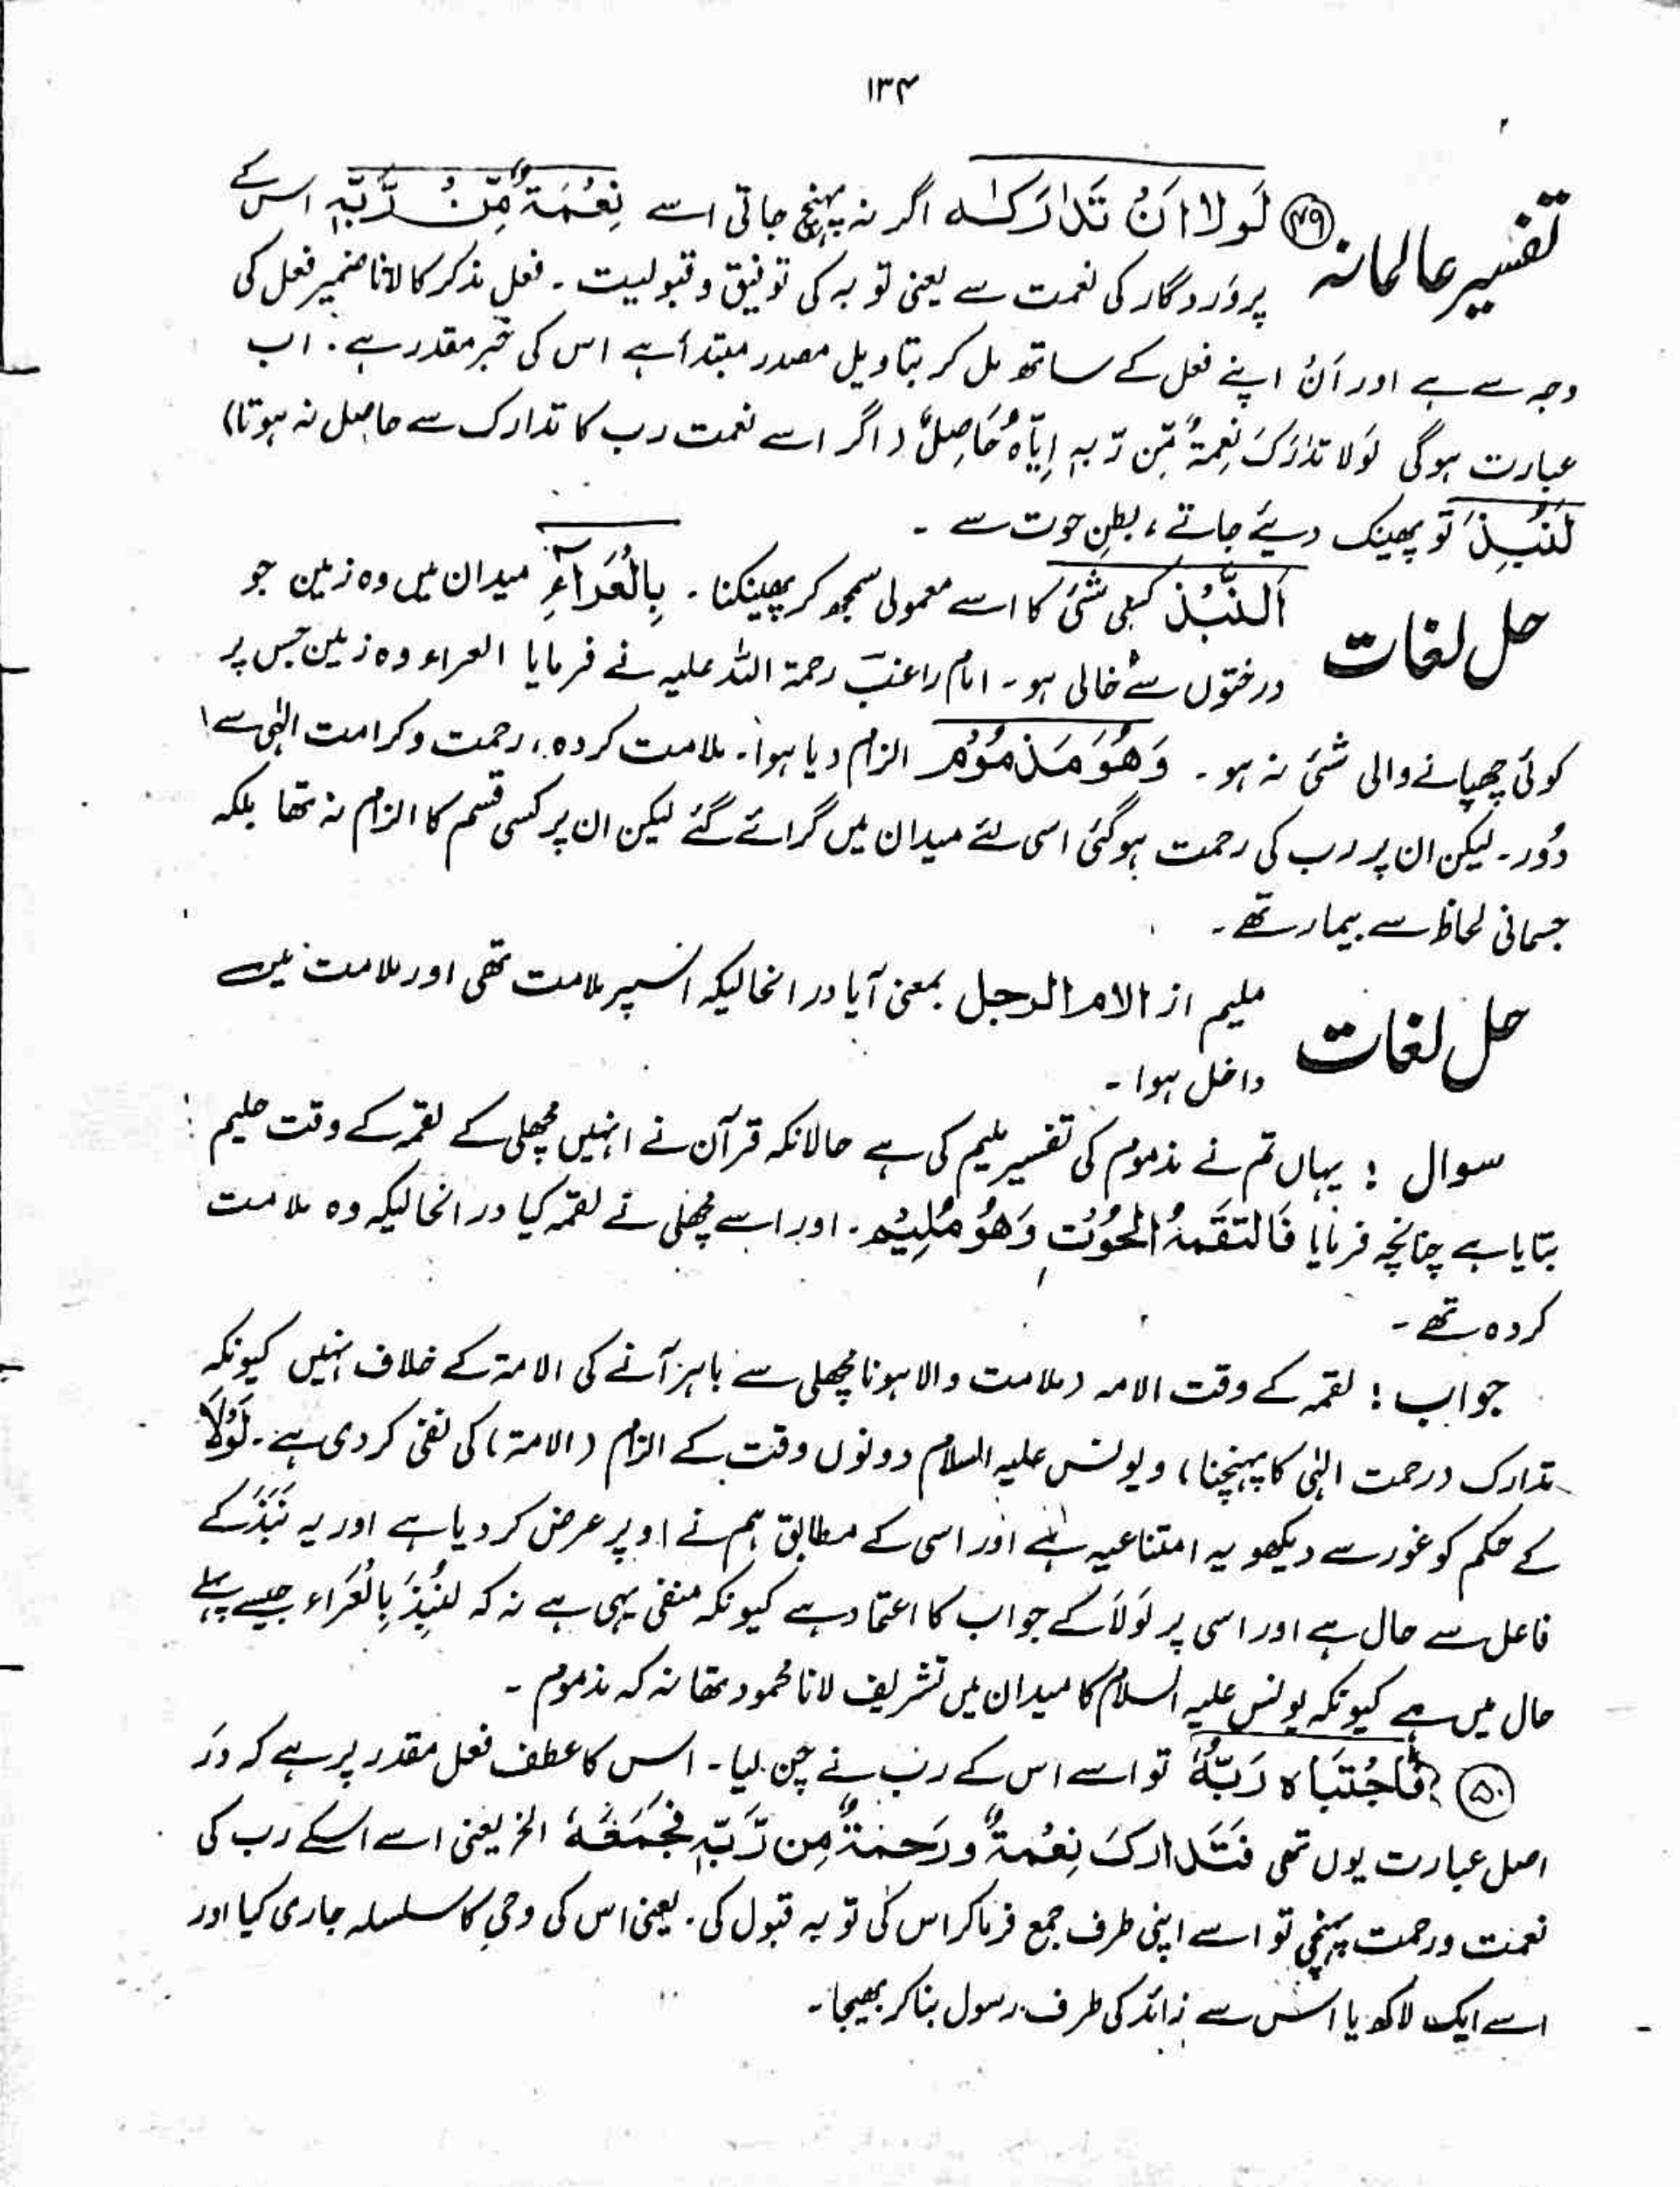 ۱۳۴
تفسیر عالمانہ ㊾ لَولا اَنْ تَدَارَکَہ اگر نہ پہنچ جاتی اسے نِعْمَۃٌ مِّنْ رَّبِّہٖ اس کے
پروَردگار کی نعمت سے یعنی توبہ کی توفیق و قبولیت ۔ فعل مذکر کا لانا ضمیر فعل کی
وجہ سے ہے اور اَنْ اپنے فعل کے ساتھ مل کر بتاویل مصدر مبتدأ ہے اس کی خبر مقدر ہے ۔ اب
عبارت ہوگی لَولا تدارَکَ نِعِمۃٌ مِّن رّبہٖ اِیّاہُ حَاصِلٌ ( اگر اسے نعمت رب کا تدارک سے حاصل نہ ہوتا)
لَنُبِذَ تو پھینک دیئے جاتے ، بطنِ حوت سے ۔
حل لغات اَلنَّبْذ کسی شئ کا اسے معمولی سمجھ کر پھینکنا ۔ بِالْعَرَآءِ میدان میں وہ زمین جو
درختوں سے خالی ہو ۔ امام راغب رحمۃ اللہ علیہ نے فرمایا العراء وہ زمین جس پر
کوئی چھپانے والی شئ نہ ہو ۔ وَھُوَ مَذْمُوْمٌ الزام دیا ہوا ۔ ملامت کردہ ، رحمت و کرامت الٰہی سے
دُور ۔ لیکن ان پر رب کی رحمت ہوگئی اسی لئے میدان میں گرائے گئے لیکن ان پر کسی قسم کا الزام نہ تھا بلکہ
جسمانی لحاظ سے بیمار تھے ۔
حل لغات ملیم از الام الرجل بمعنی آیا در انحالیکہ اسپر ملامت تھی اور ملامت میں
داخل ہوا ۔
سوال : یہاں تم نے مذموم کی تفسیر ملیم کی ہے حالانکہ قرآن نے انہیں مچھلی کے لقمہ کے وقت ملیم
بتایا ہے چنانچہ فرمایا فَالتَقَمَہُ الْحُوْتُ وَھُوَ مُلِیْم ۔ اور اسے مچھلی نے لقمہ کیا در انحالیکہ وہ ملامت
کردہ تھے ۔
جواب : لقمہ کے وقت الامہ (ملامت والا ہونا مچھلی سے باہر آنے کی الامۃ کے خلاف نہیں کیونکہ
تدارک (رحمت الٰہی کا پہنچنا) و یونس علیہ السلام دونوں وقت کے الزام (الامۃ) کی نفی کردی ہے ۔ لَوْلَا
کے حکم کو غور سے دیکھو یہ امتناعیہ ہے اور اسی کے مطابق ہم نے اوپر عرض کردیا ہے اور یہ نَبَذَ کے
فاعل سے حال ہے اور اسی پر لَولَا کے جواب کا اعتماد ہے کیونکہ منفی یہی ہے نہ کہ لنُبِذَ بِالْعَرَاء جیسے پہلے
حال میں ہے کیونکہ یونس علیہ السلام کا میدان میں تشریف لانا محمود تھا نہ کہ مذموم ۔
㊿ فَاجْتَبَاہ رَبُّہٗ تو اسے اس کے رب نے چن لیا ۔ اس کا عطف فعل مقدر پر ہے کہ در
اصل عبارت یوں تھی فَتَدَارکَ نِعْمۃٌ و رَحمَۃٌ مِن رَّبِّہٖ فَجَمَعَہٗ الخ یعنی اسے اسکے رب کی
نعمت و رحمت پہنچی تو اسے اپنی طرف جمع فرماکر اس کی توبہ قبول کی ۔ یعنی اس کی وحی کا سلسلہ جاری کیا اور
اسے ایک لاکھ یا اس سے زائد کی طرف رسول بنا کر بھیجا ۔